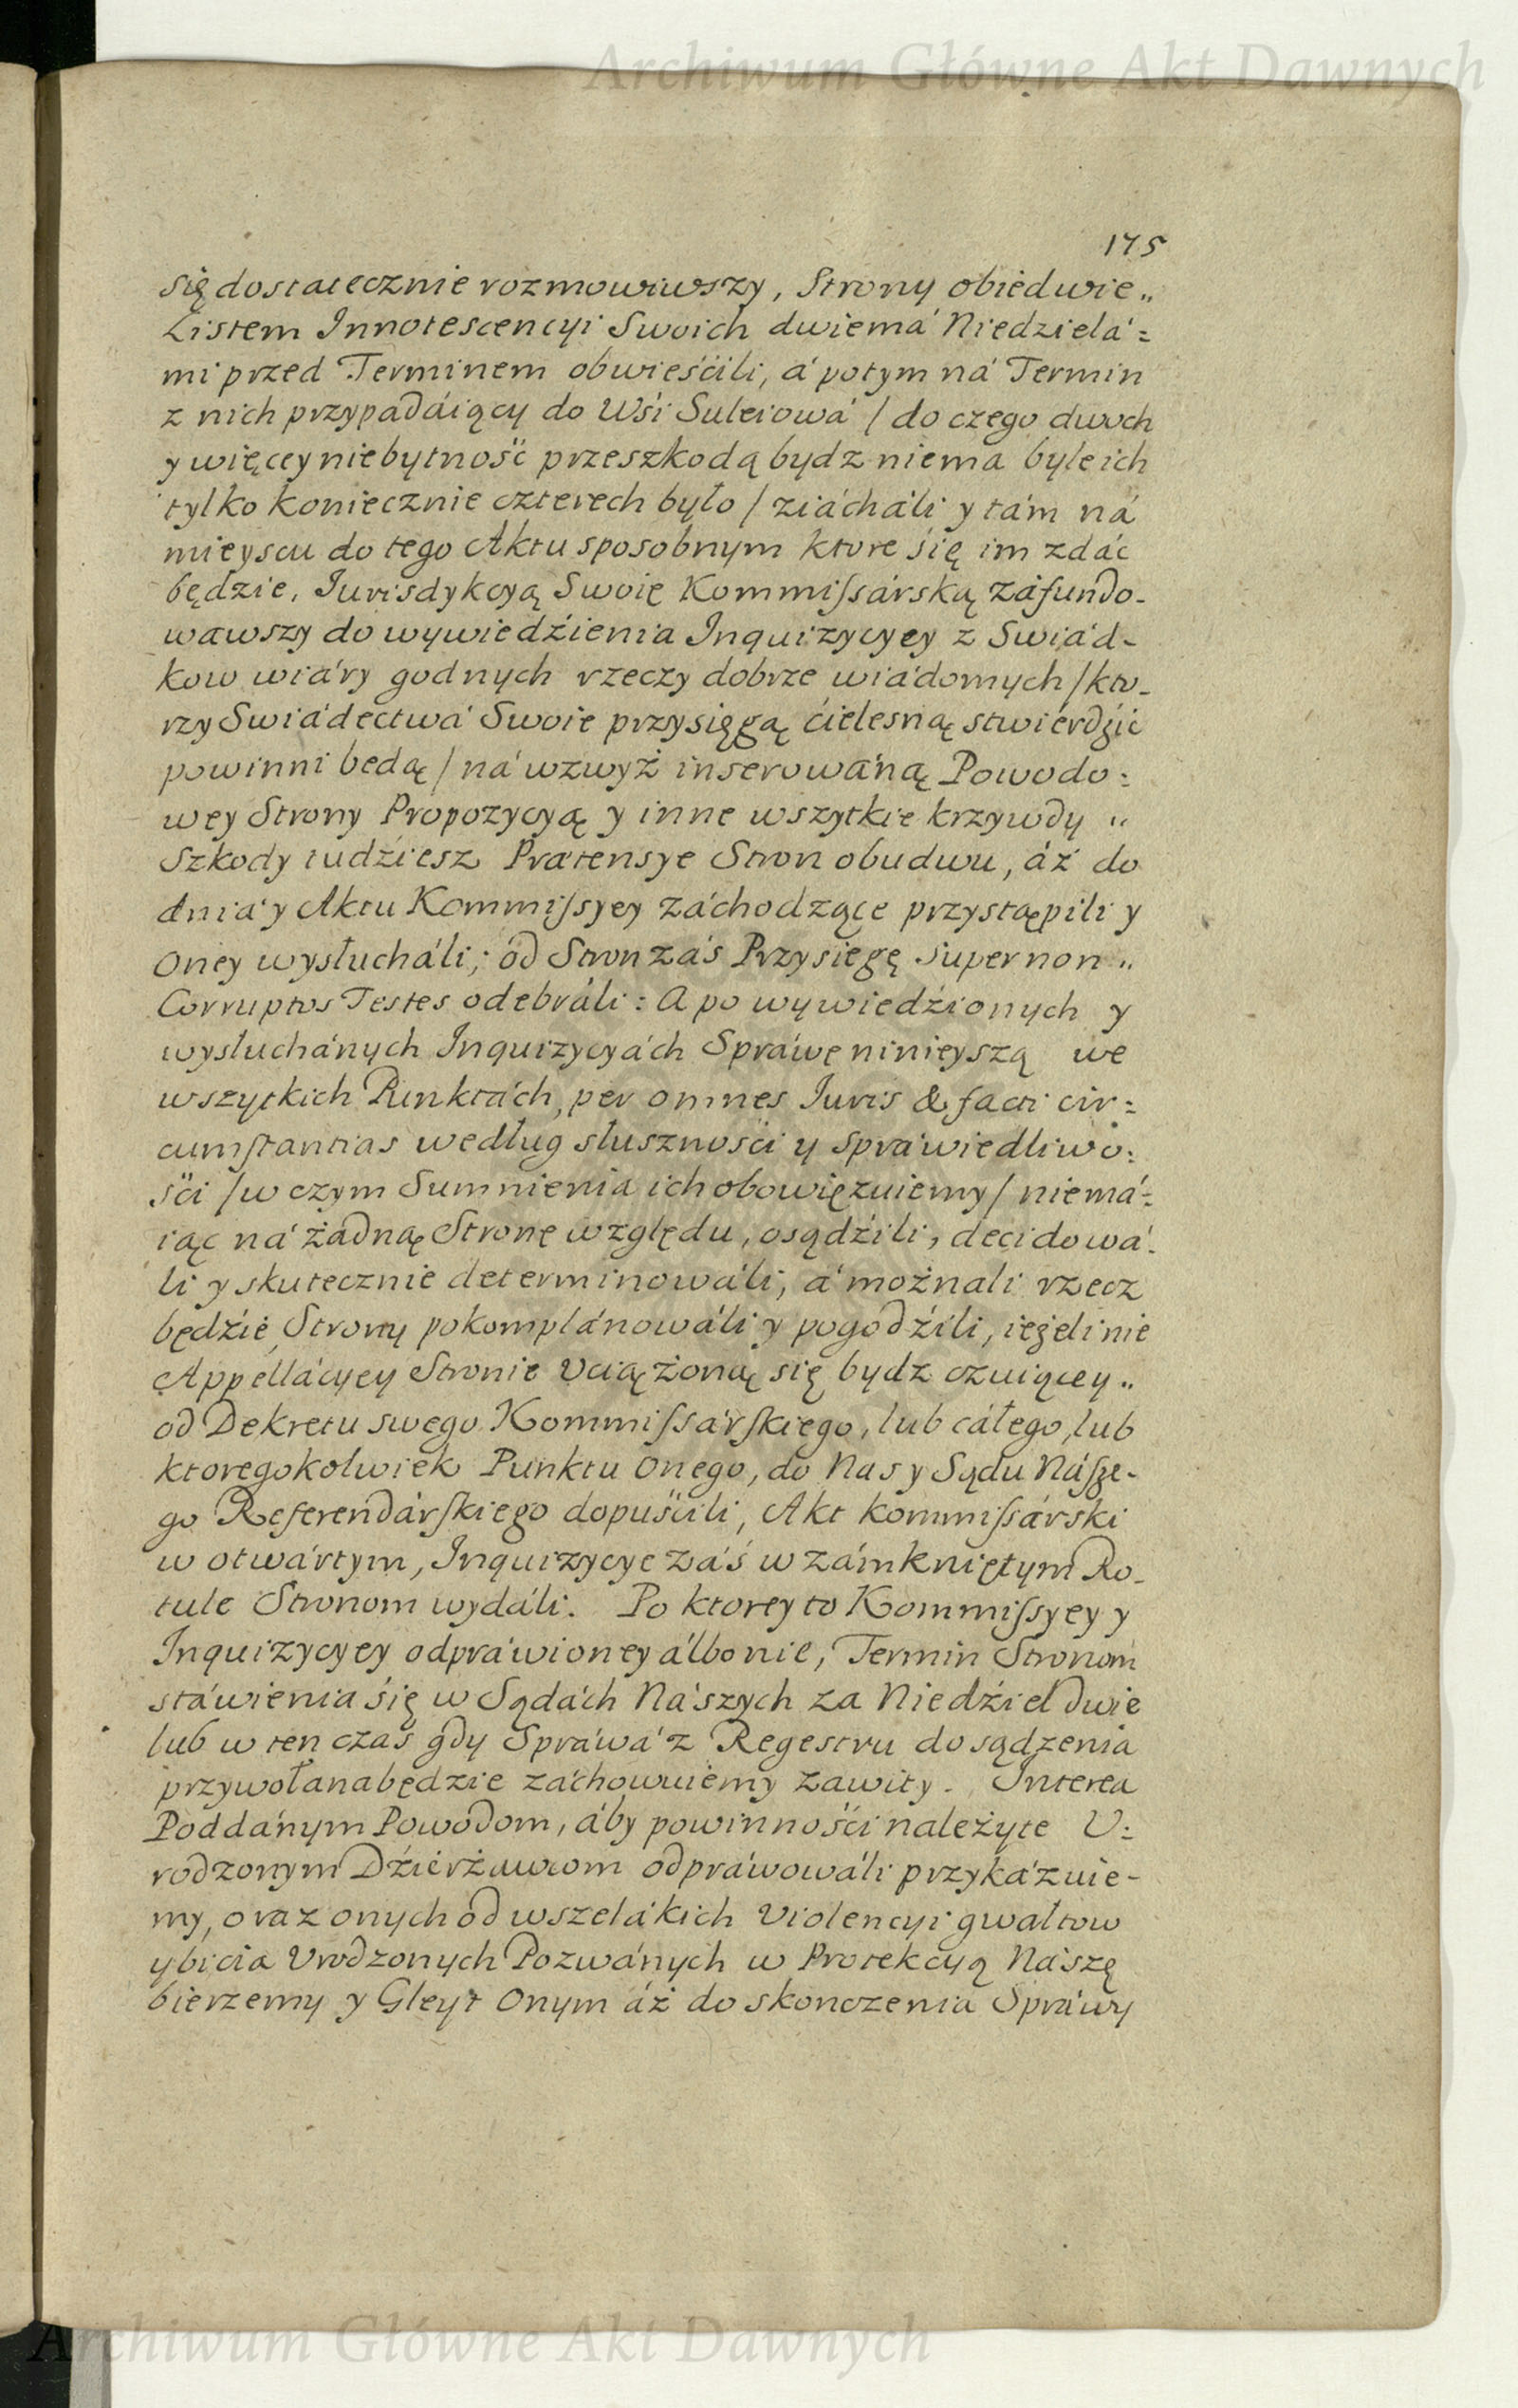 Archiwum Główne Akt Dawnych
175
się dostatecznie rozmowiwszy, Strony obiedwie„
Listem Innotescencyi Swoich dwiemá Niedzielá=
mi przed Terminem obwieśćili, á potym ná Termin
z nich przypadáiący do Wśi Suleiowá / do czego dwuch
y więcey niebytność przeszkodą bydz niema byle ich
tylko koniecznie czterech było / ziácháli y tám ná
mieyscu do tego Aktu sposobnym ktore się im zdáć
będzie, Iurisdykcyą Swoię Kommiſsárską záfundo-
wawszy do wywiedźienia Inquizycyey z Swiád-
kow wiáry godnych rzeczy dobrze wiádomych / kto-
rzy Swiádectwá Swoie przysięgą ćielesną stwierdźić
powinni bedą / ná wzwyż inserowáną Powodo=
wey Strony Propozycyą y inne wszytkie krzywdy „
Szkody tudźiesz Prætensye Stron obudwu, áż do
dniá y Aktu Kommiſsyey záchodzące przystąpili y
Oney wysłucháli; od Stron zás Przysięgę super non„
Corruptos Testes odebráli: A po wywiedźionych y
wysłuchánych Inquizycyách Spráwę ninieyszą we
wszytkich Punktách, per omnes Iuris & facti cir=
cumſtantias według słusznośći y spráwiedliwo=
śći / w czym Sumnienia ich obowięzuiemy / niemá=
iąc ná żadną Stronę względu, osądźili, decidowá-
li y skutecznie determinowáli, á możnali rzecz
będźie Strony pokomplánowáli y pogodźili, ieżeli nie
Appellácyey Stronie Uciążoną się bydz czuiącey„
od Dekretu swego Kommiſsárſkiego, lub całego, lub
ktoregokolwiek Punktu onego, do Nas y Sądu Náſze-
go Referendárſkiego dopuśćili, Akt kommiſsárski
w otwártym, Inquizycye záś w zámkniętym Ro-
tule Stronom wydáli. Po ktorey to Kommiſsyey y
Inquizycyey odpráwioney álbo nie, Termin Stronom
stáwienia się w Sądách Nászych za Niedźiel dwie
lub w ten czas gdy Spráwá z Regestru do sądzenia
przywołana będzie záchowuiemy zawity. Interea
Poddánym Powodom, áby powinnośći należyte U=
rodzonym Dźierżawcom odpráwowáli przykázuie-
my, oraz onych od wszelákich Violencyi gwałtow
y bicia Vrodzonych Pozwánych w Protekcyą Nászę
bierzemy y Gleyt Onym áż do skonczenia Spráwy
Archiwum Główne Akt Dawnych